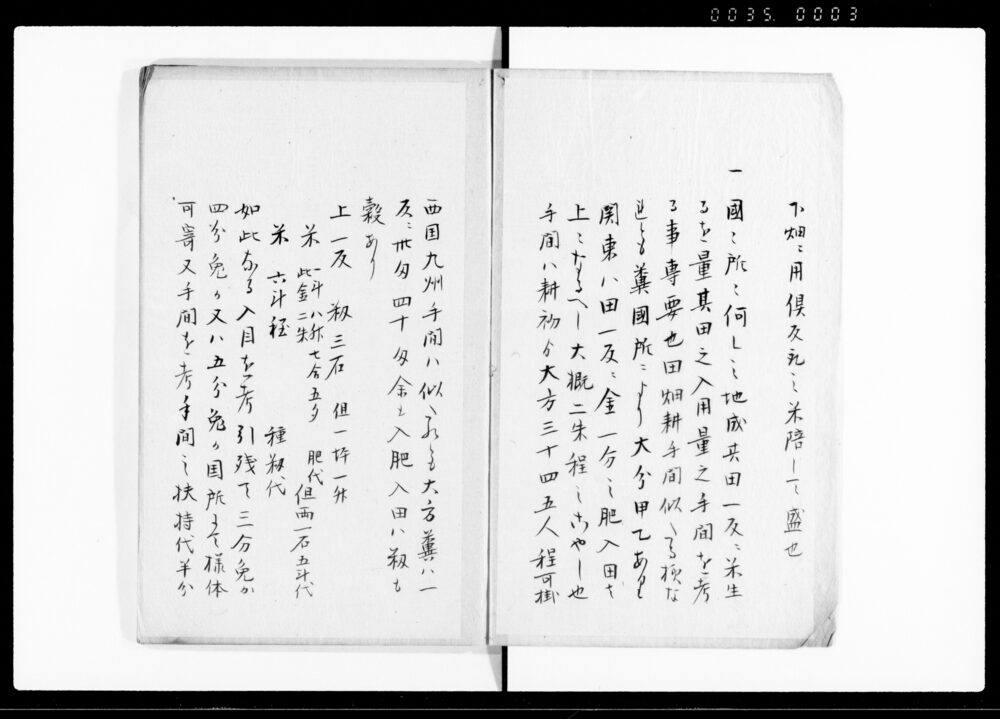 0035. 0003
下畑ニ用倶反死ニ米陪して盛也
一國ニ所ニ何しニ地成共田一反ニ米生
るを量其田之入用量之手間を考
る事専要也田畑耕手間似る様な
れとも糞國所により大分甲乙あり
関東ハ田一反ニ金一分ニ肥入田も
上ニなるへし大概二朱程こやし也
手間ハ耕初ゟ大方三十四五人程可掛
西国九州手間ハ似るも大方糞ハ一
反ニ卅匁四十匁余も入肥入田ハ籾も
穀あり
上一反 籾三石 但一坪一升
米 一斗八升七合五夕 肥代
此金二朱 但両一石五斗代
米 六斗程 種籾代
如此なる入目を考引残て三分免か
四分免か又ハ五分免か国所にて様体
可寄又手間を考手間之扶持代半分